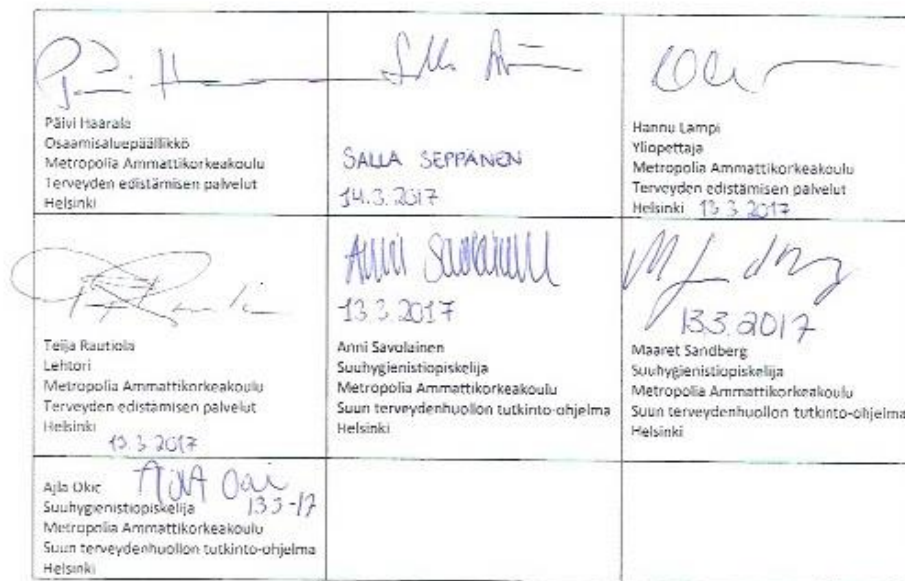 Päivi Haarala
Osaamisaluepäällikkö
Metropolia Ammattikorkeakoulu
Terveyden edistämisen palvelut
Helsinki
SALLA SEPPÄNEN
14.3.2017
Hannu Lampi
Yliopettaja
Metropolia Ammattikorkeakoulu
Terveyden edistämisen palvelut
Helsinki 13.3.2017
Teija Rautiola
Lehtori
Metropolia Ammattikorkeakoulu
Terveyden edistämisen palvelut
Helsinki
13.3.2017
Anni Savolainen
13.3.2017
Anni Savolainen
Suuhygienistiopiskelija
Metropolia Ammattikorkeakoulu
Suun terveydenhuollon tutkinto-ohjelma
Helsinki
13.3.2017
Maaret Sandberg
Suuhygienistiopiskelija
Metropolia Ammattikorkeakoulu
Suun terveydenhuollon tutkinto-ohjelma
Helsinki
Ajla Okic
Suuhygienistiopiskelija 13.3-17
Metropolia Ammattikorkeakoulu
Suun terveydenhuollon tutkinto-ohjelma
Helsinki